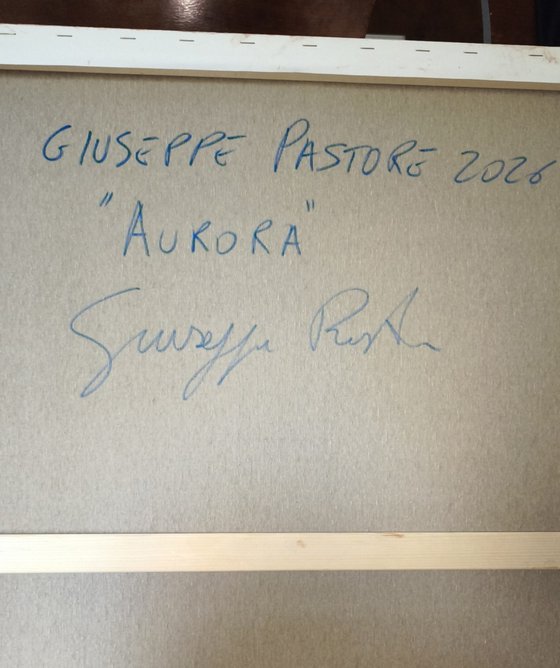 GIUSEPPE PASTORE 2026
"AURORA"
Giuseppe Pastore